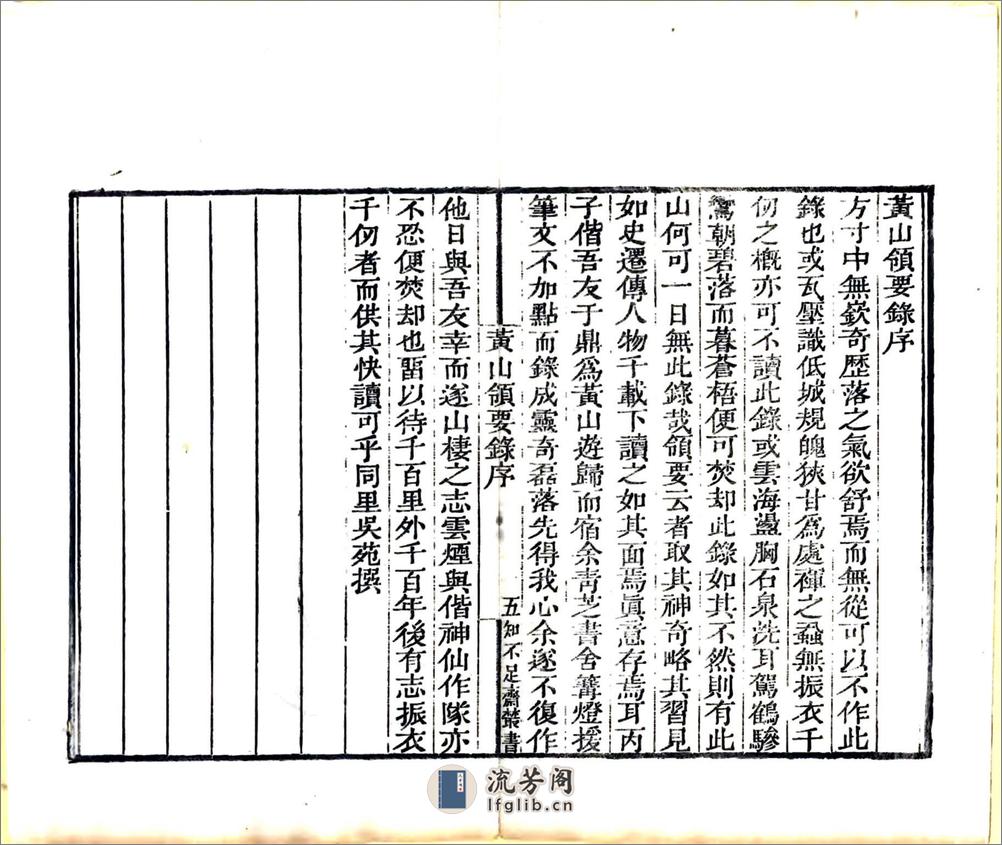 黃山領要錄序
方寸中無嶔奇歷落之氣欲舒焉而無從可以不作此
錄也或瓦壓識低城規魄狹甘爲處褌之蝨無振衣千
仞之概亦可不讀此錄或雲海盪胸石泉洗耳駕鶴驂
鸞朝碧落而暮蒼梧便可焚却此錄如其不然則有此
山何可一日無此錄哉領要云者取其神奇略其習見
如史遷傳人物千載下讀之如其面焉眞意存焉耳丙
子偕吾友于鼎爲黃山遊歸而宿余靑芝書舍篝燈援
筆文不加點而錄成靈奇磊落先得我心余遂不復作
黃山領要錄序
五
知不足齋叢書
他日與吾友幸而遂山棲之志雲煙與偕神仙作隊亦
不忍便焚却也畱以待千百里外千百年後有志振衣
千仞者而供其快讀可乎同里吳苑撰
流芳阁
lfglib.cn